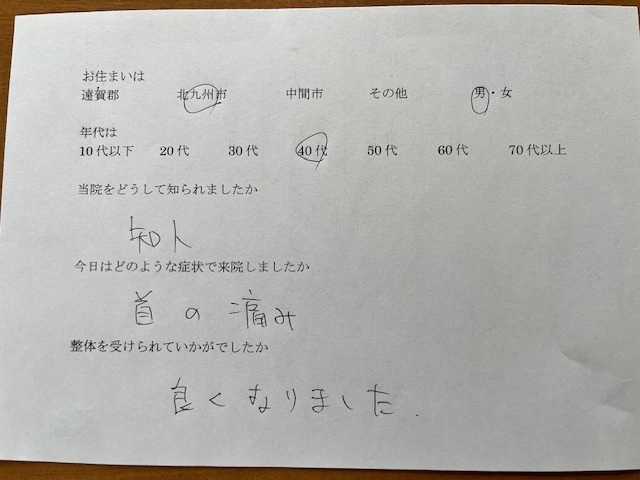 お住まいは
遠賀郡 北九州市 中間市 その他 男・女
年代は
10代以下 20代 30代 40代 50代 60代 70代以上
当院をどうして知られましたか
知人
今日はどのような症状で来院しましたか
首の痛み
整体を受けられていかがでしたか
良くなりました.